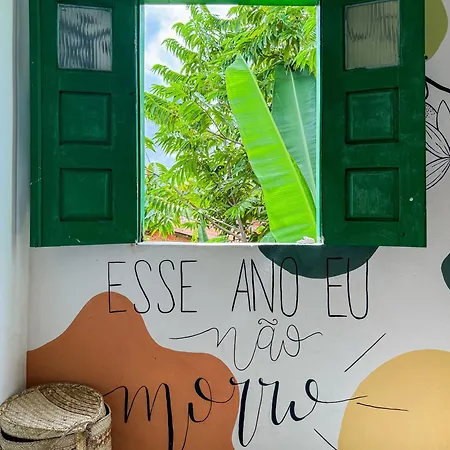 ESSE ANO EU
não
morro